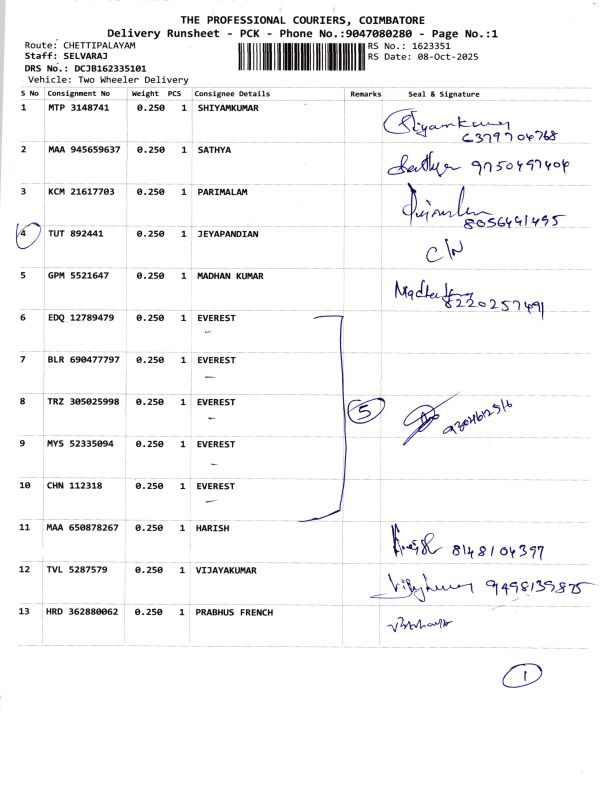 THE PROFESSIONAL COURIERS, COIMBATORE
Delivery Runsheet - PCK - Phone No.:9047080280 - Page No.:1
Route: CHETTIPALAYAM RS No.: 1623351
Staff: SELVARAJ RS Date: 08-Oct-2025
DRS No.: DCJB162335101
Vehicle: Two Wheeler Delivery
S No Consignment No Weight PCS Consignee Details Remarks Seal & Signature
1 MTP 3148741 0.250 1 SHIYAMKUMAR
2 MAA 945659637 0.250 1 SATHYA Sathya 9750497404
3 KCM 21617703 0.250 1 PARIMALAM
8056441495
4 TUT 892441 0.250 1 JEYAPANDIAN
C/N
5 GPM 5521647 0.250 1 MADHAN KUMAR
8220257491
6 EDQ 12789479 0.250 1 EVEREST
7 BLR 690477797 0.250 1 EVEREST
8 TRZ 305025998 0.250 1 EVEREST 5
9 MYS 52335094 0.250 1 EVEREST
10 CHN 112318 0.250 1 EVEREST
11 MAA 650878267 0.250 1 HARISH
8148104397
12 TVL 5287579 0.250 1 VIJAYAKUMAR
9498139875
13 HRD 362880062 0.250 1 PRABHUS FRENCH
1